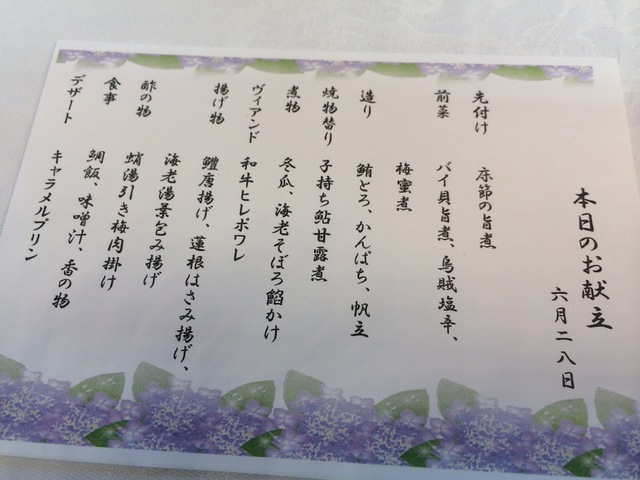 本日のお献立
六月二八日
先付け　床節の旨煮
前菜　バイ貝旨煮、烏賊塩辛、
梅蜜煮
造り　鮪とろ、かんぱち、帆立
焼物替り　子持ち鮎甘露煮
煮物　冬瓜、海老そぼろ餡かけ
ヴィアンド　和牛ヒレポワレ
揚げ物　鱧唐揚げ、蓮根はさみ揚げ、
海老湯葉包み揚げ
酢の物　蛸湯引き梅肉掛け
食事　鯛飯、味噌汁、香の物
デザート　キャラメルプリン